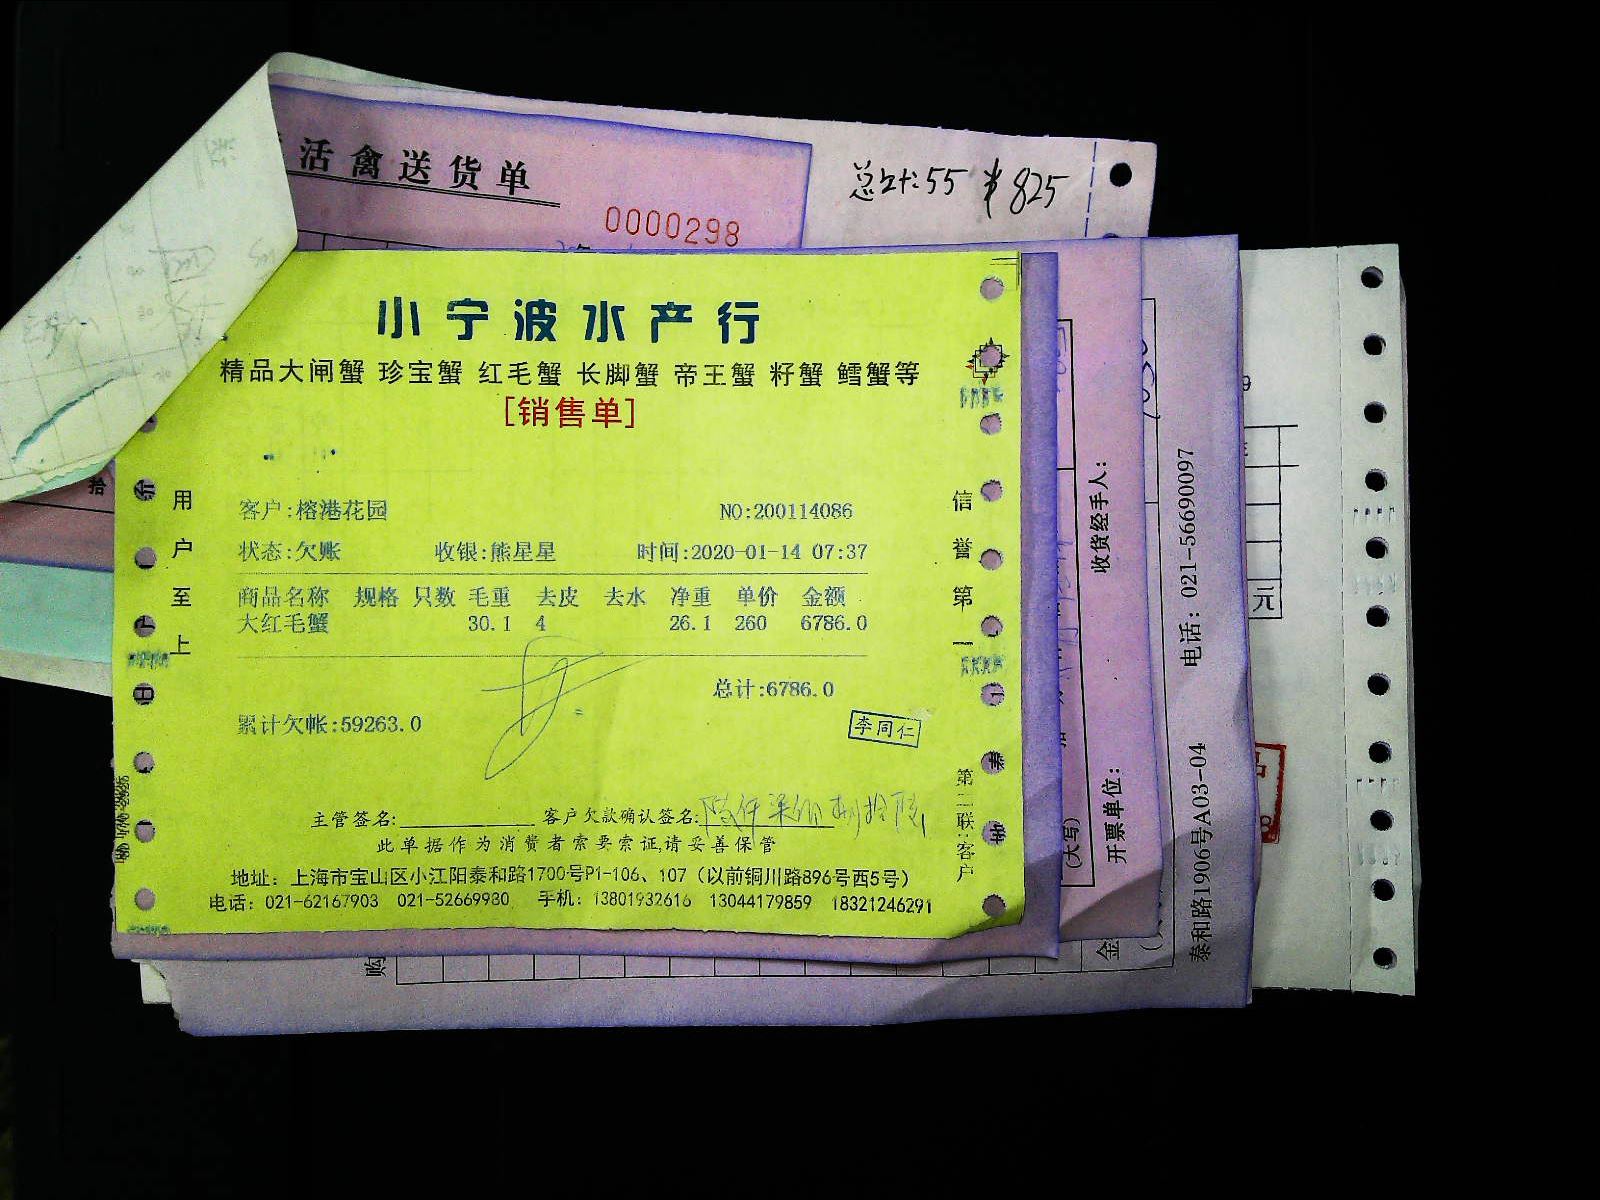 活禽送货单
总计:55 ¥825
0000298
小宁波水产行
精品大闸蟹 珍宝蟹 红毛蟹 长脚蟹 帝王蟹 籽蟹 鳕蟹等
[销售单]
用户至上
信誉第一
客户:榕港花园 NO:200114086
状态:欠账 收银:熊星星 时间:2020-01-14 07:37
商品名称 规格 只数 毛重 去皮 去水 净重 单价 金额
大红毛蟹 30.1 4 26.1 260 6786.0
总计:6786.0
累计欠帐:59263.0
李同仁
第二联:客户
主管签名: 客户欠款确认签名:
此单据作为消费者索要索证,请妥善保管
地址：上海市宝山区小江阳泰和路1700号P1-106、107（以前铜川路896号西5号）
电话：021-62167903 021-52669980 手机：13801932616 13044179859 18321246291
拾
收货经手人：
开票单位：
(大写)
电话：021-56690097
泰和路1906号A03-04
元
购
金